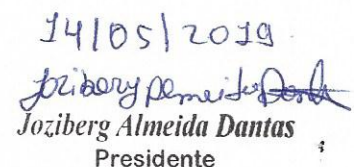 14/05/2019
Joziberg Almeida Dantas
Joziberg Almeida Dantas
Presidente